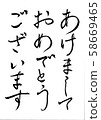 あけまして
おめでとう
ございます
58669465